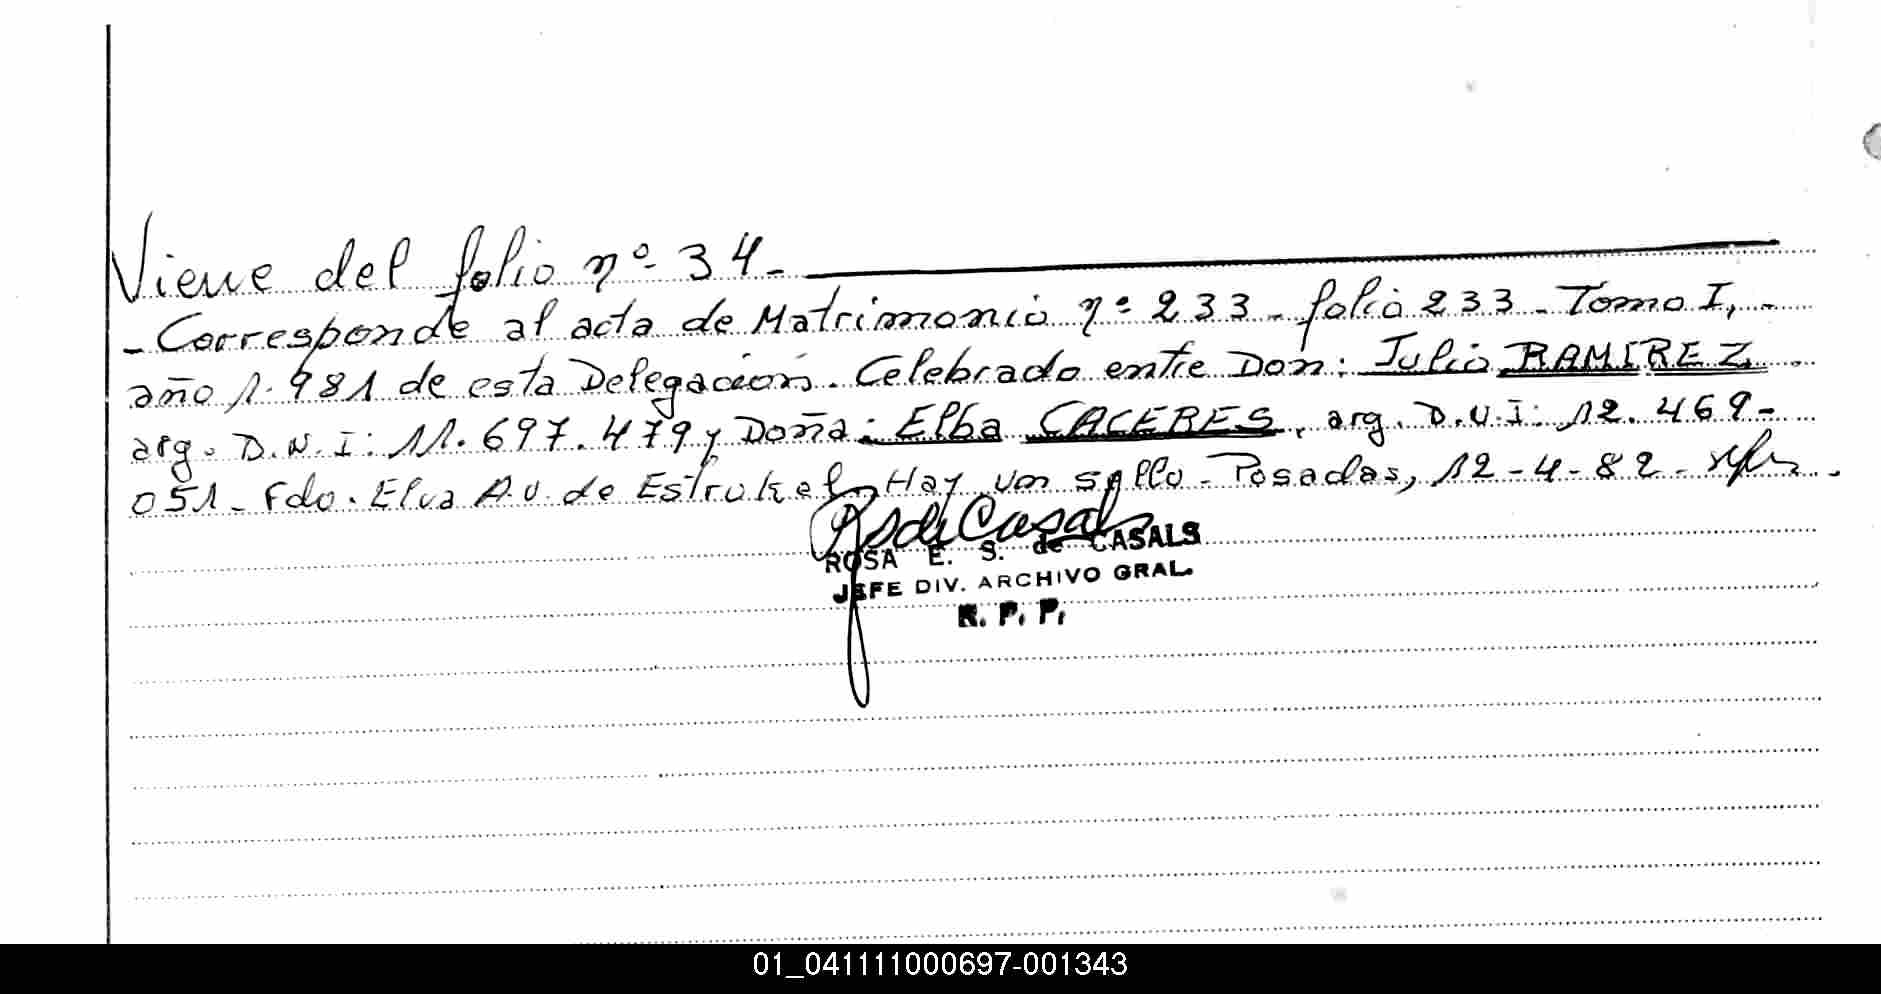 Viene del folio nº 34-
- Corresponde al acta de Matrimonio nº 233 - folio 233 - Tomo I, -
año 1.981 de esta Delegación. Celebrado entre Don: Julio RAMIREZ
arg. D.N.I: 11.697.479 y Doña: Elba CACERES, arg. D.N.I: 12.469-
051 - Fdo. Elva A.V. de Estrukel - Hay un sello - Posadas, 12-4-82 -
RSdeCasals
ROSA E. S. de CASALS
JEFE DIV. ARCHIVO GRAL.
R. P. P.
01_041111000697-001343